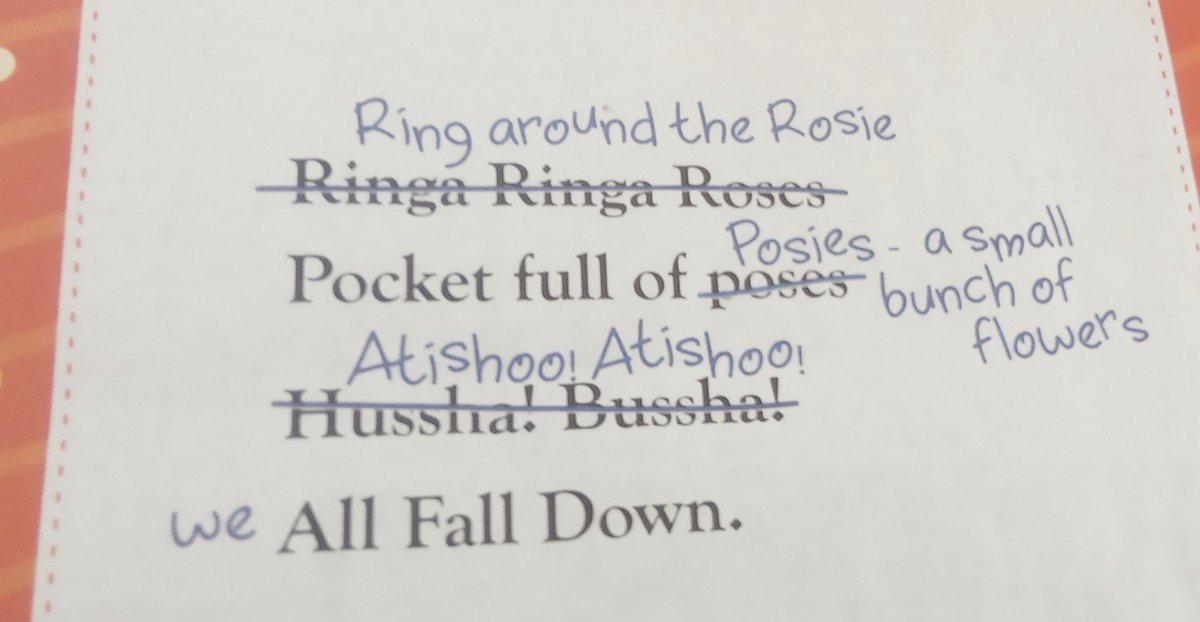 Ring around the Rosie
Ringa Ringa Roses
Posies - a small
Pocket full of poses bunch of
flowers
Atishoo! Atishoo!
Hussha! Bussha!
we All Fall Down.